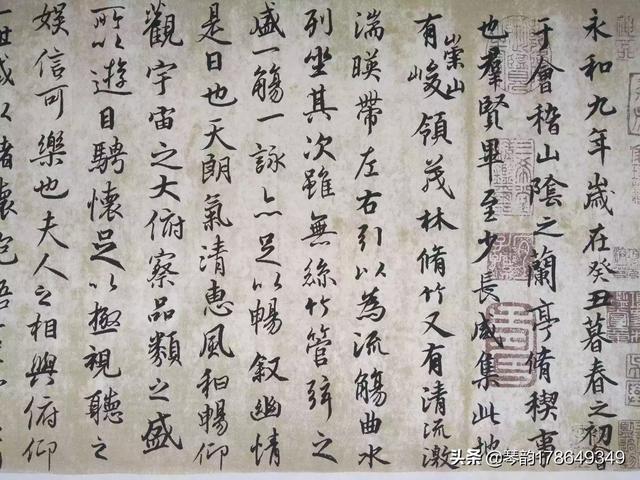 永和九年歲在癸丑暮春之初會
于會稽山陰之蘭亭脩稧事
也羣賢畢至少長咸集此地
有崇山峻領茂林脩竹又有清流激
湍暎帶左右引以為流觴曲水
列坐其次雖無絲竹管弦之
盛一觴一詠亦足以暢敘幽情
是日也天朗氣清惠風和暢仰
觀宇宙之大俯察品類之盛
所以遊目騁懷足以極視聽之
娛信可樂也夫人之相與俯仰
一世或取諸懷抱悟
头条 @琴韵178649349